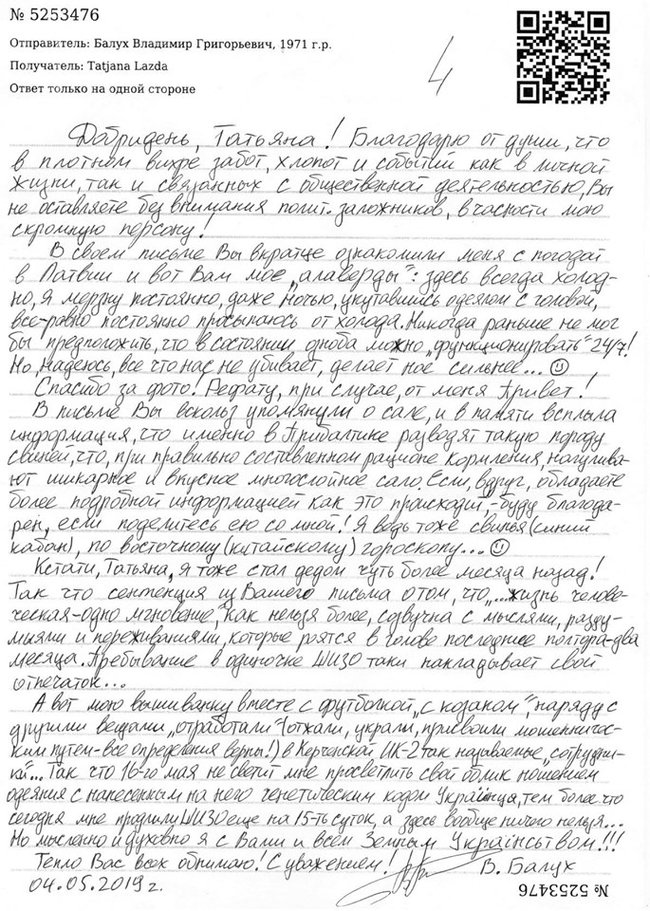 № 5253476
Отправитель: Балух Владимир Григорьевич, 1971 г.р.
Получатель: Tatjana Lazda
Ответ только на одной стороне
4
Добридень, Татьяна! Благодарю от души, что
в плотном вихре забот, хлопот и событий как в личной
жизни, так и связанных с общественной деятельностью, Вы
не оставляете без внимания полит. заложников, в часности мою
скромную персону!
В своем письме Вы вкратце ознакомили меня с погодой
в Латвии и вот Вам мое „алаверды“: здесь всегда холод-
но, я мерзну постоянно, даже ночью, укутавшись одеялом с головой,
все-равно постоянно просыпаюсь от холода. Никогда раньше не мог
бы предположить, что в состоянии озноба можно „функционировать“ 24/7!
Но, надеюсь, все что нас не убивает, делает нас сильнее... ☺
Спасибо за фото! Рефату, при случае, от меня Привет!
В письме Вы вскользь упомянули о сале, и в памяти всплыла
информация, что именно в Прибалтике разводят такую породу
свиней, что, при правильно составленном рационе кормления, нагулива-
ют шикарное и вкусное многослойное сало. Если, вдруг, обладаете
более подробной информацией как это происходит, - буду благода-
рен, если поделитесь ею со мной! Я ведь тоже свинья (синий
кабан), по восточному (китайскому) гороскопу... ☺
Кстати, Татьяна, я тоже стал дедом чуть более месяца назад!
Так что сентенция из Вашего письма о том, что „...жизнь челове-
ческая-одно мгновение“, как нельзя более, созвучна с мыслями, разду-
миями и переживаниями, которые роятся в голове последние полтора-два
месяца. Пребывание в одиночке ШИЗО таки накладывает свой
отпечаток...
А вот мою вышиванку вместе с футболкой „с козаком“, наряду с
другими вещами „отработали“ (отжали, украли, присвоили мошенничес-
ким путем-все определения верны!) в Керченской ИК-2 так называемые „сотрудни-
ки“... Так что 16-го мая не светит мне просветлить свой облик ношением
одеяния с нанесенным на него генетическим кодом Українця, тем более что
сегодня мне продлили ШИЗО еще на 15-ть суток, а здесь вообще ничего нельзя...
Но мысленно и духовно я с Вами и всем Земным Українством!!!
Тепло Вас всех обнимаю! С уважением! В. Балух
04.05.2019 г.
№ 5253476